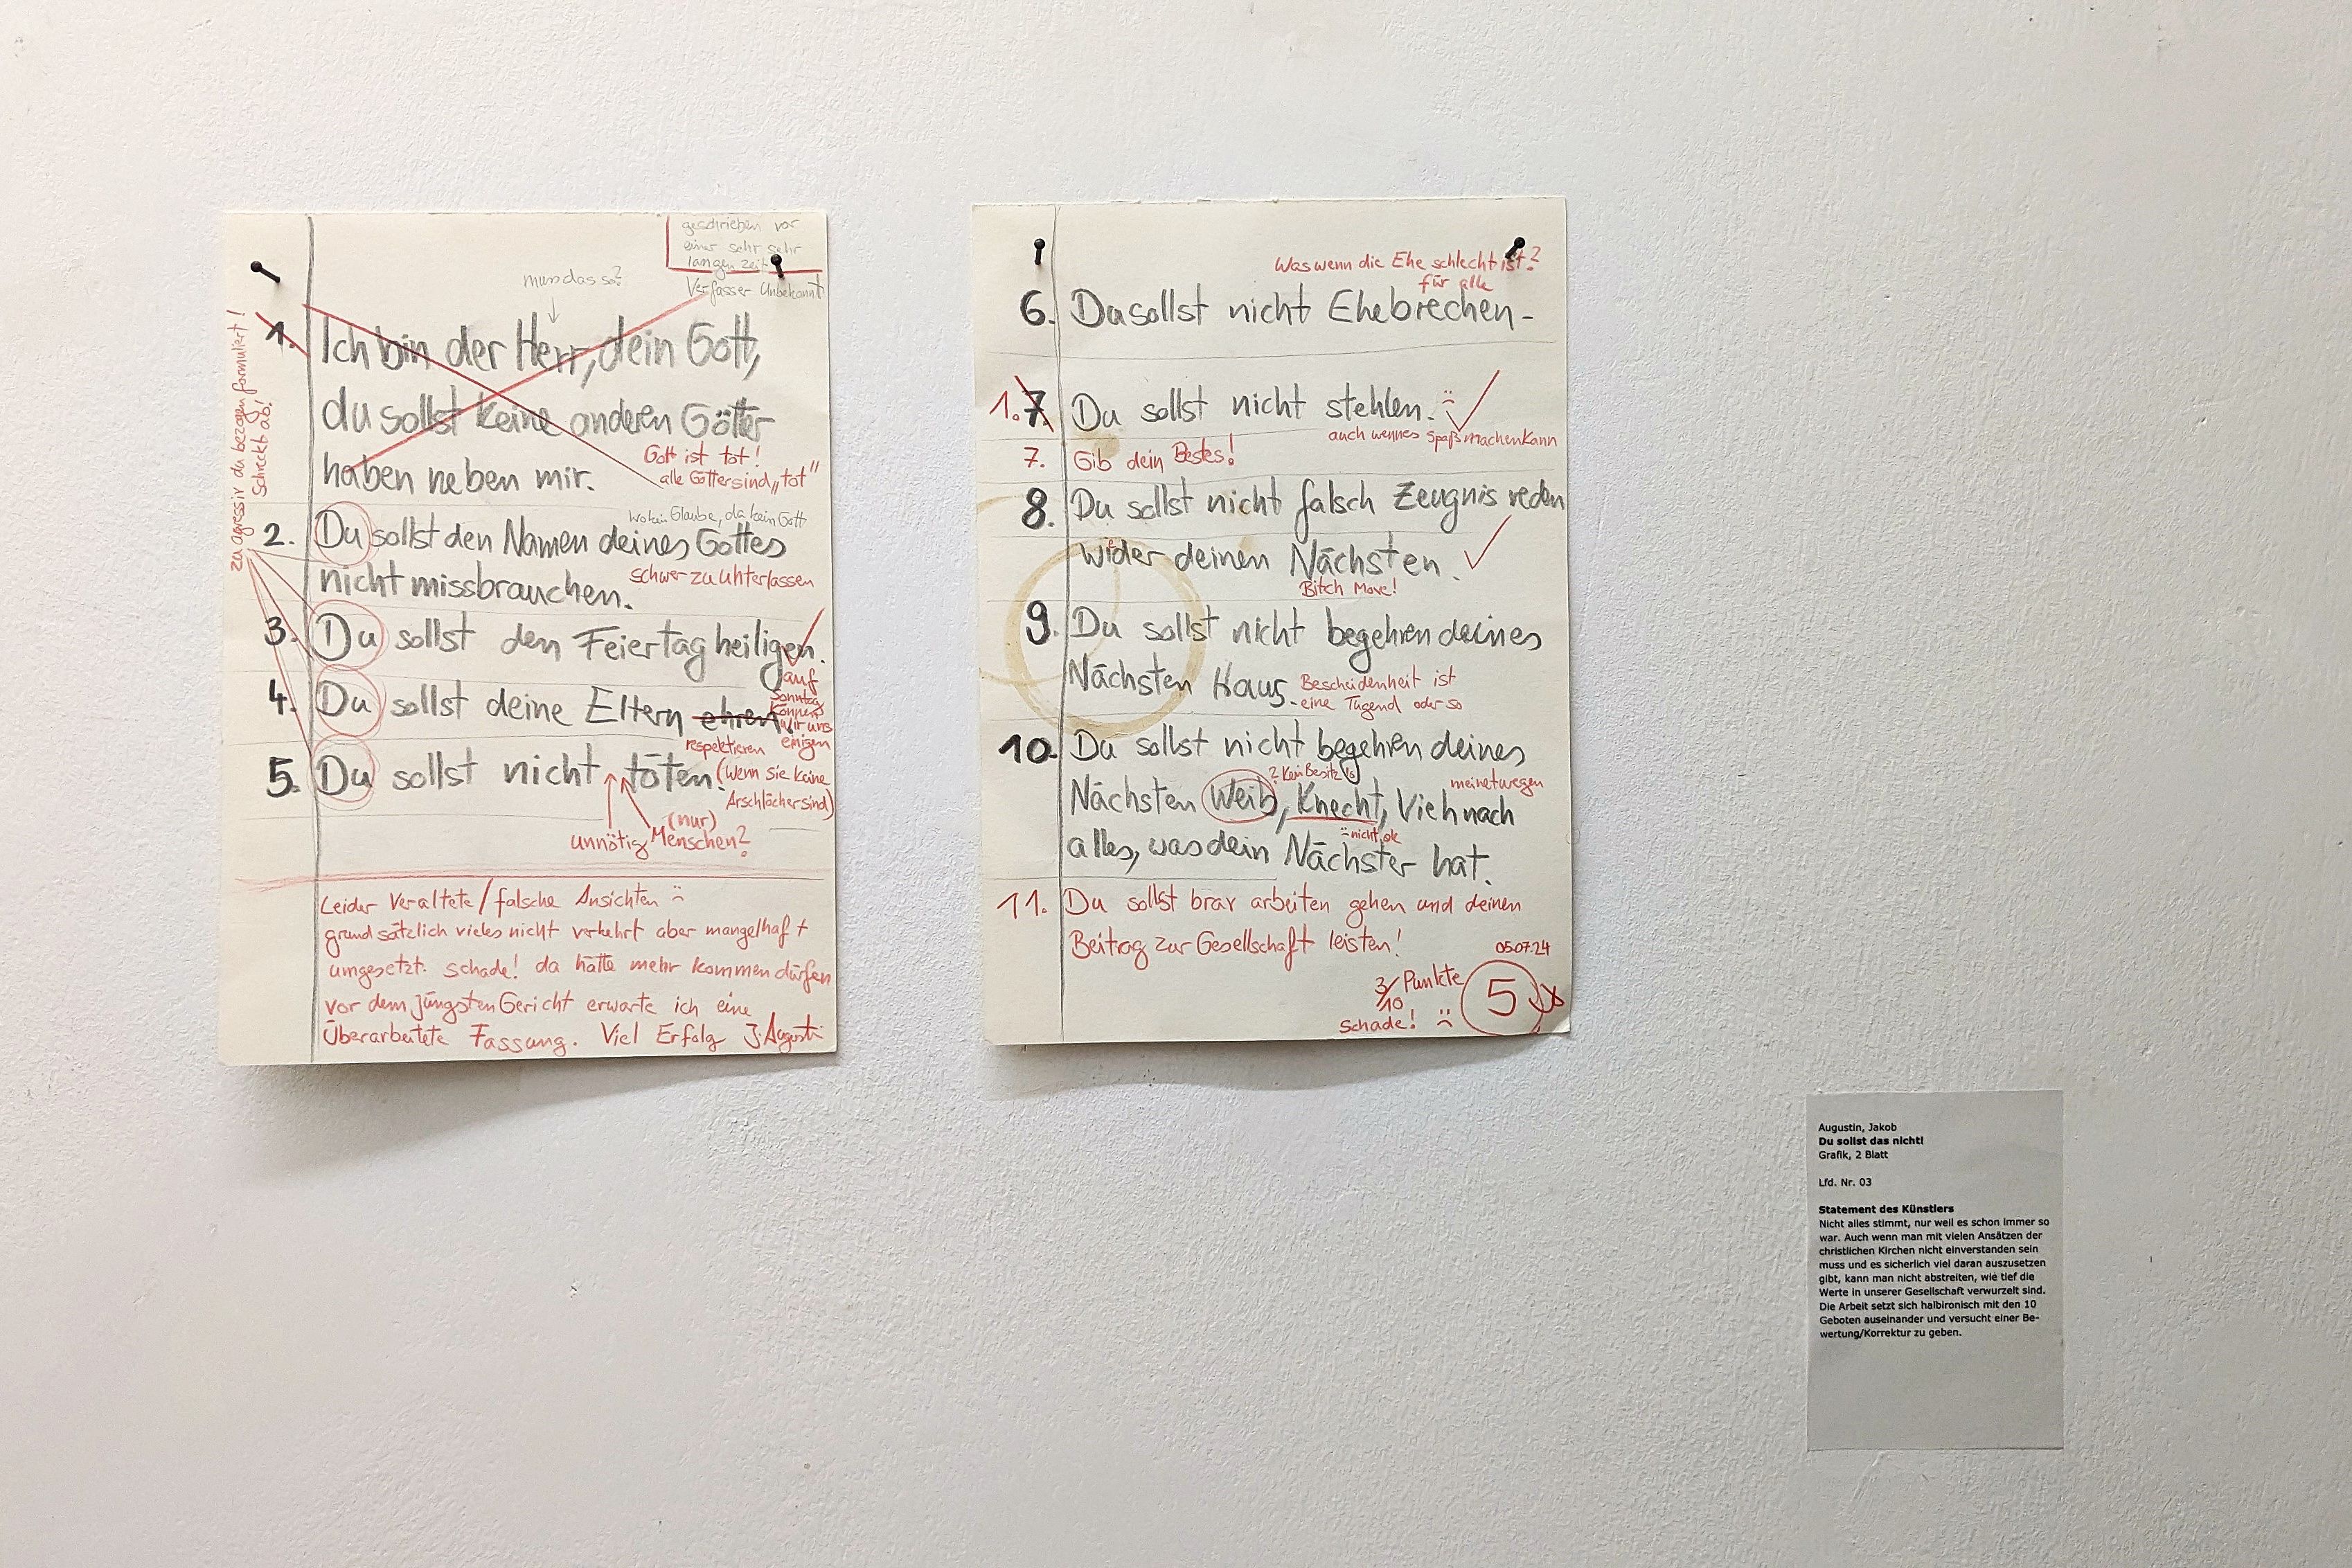 geschrieben vor
einer sehr sehr
langen Zeit
Verfasser Unbekannt
muss das so?
zu agressiv du bezogen formuliert!
Schreckt ab!
1. Ich bin der Herr, dein Gott,
du sollst keine anderen Götter
haben neben mir.
Gott ist tot!
alle Götter sind „tot"
wo kein Glaube, da kein Gott
2. Du sollst den Namen deines Gottes
nicht missbrauchen.
schwer zu unterlassen
3. Du sollst den Feiertag heiligen.
auf
Sonntag
können
wir uns
einigen
4. Du sollst deine Eltern ehren.
respektieren
(wenn sie keine
Arschlöcher sind)
5. Du sollst nicht töten.
unnötig
(nur)
Menschen?
Leider Veraltete/falsche Ansichten :(
grundsätzlich vieles nicht verkehrt aber mangelhaft
umgesetzt. schade! da hätte mehr kommen dürfen
vor dem jüngsten Gericht erwarte ich eine
Überarbeitete Fassung. Viel Erfolg J. Augustin
Was wenn die Ehe schlecht ist?
für alle
6. Du sollst nicht Ehebrechen-
1. 7. Du sollst nicht stehlen. :(
auch wenn es Spaß machen kann
7. Gib dein Bestes!
8. Du sollst nicht falsch Zeugnis reden
wider deinen Nächsten.
Bitch Move!
9. Du sollst nicht begehren deines
Nächsten Haus.
Bescheidenheit ist
eine Tugend oder so
10. Du sollst nicht begehren deines
? Kein Besitz
meinetwegen
Nächsten Weib, Knecht, Vieh noch
:( nicht ok
alles, was dein Nächster hat.
11. Du sollst brav arbeiten gehen und deinen
Beitrag zur Gesellschaft leisten!
05.07.24
3/10 Punkte
Schade! :(
5
Augustin, Jakob
Du sollst das nicht!
Grafik, 2 Blatt
Lfd. Nr. 03
Statement des Künstlers
Nicht alles stimmt, nur weil es schon immer so
war. Auch wenn man mit vielen Ansätzen der
christlichen Kirchen nicht einverstanden sein
muss und es sicherlich viel daran auszusetzen
gibt, kann man nicht abstreiten, wie tief die
Werte in unserer Gesellschaft verwurzelt sind.
Die Arbeit setzt sich halbironisch mit den 10
Geboten auseinander und versucht einer Be-
wertung/Korrektur zu geben.